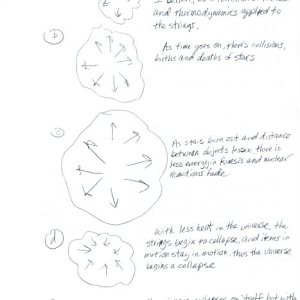 and thermodynamics applied to
the strings.
b
As time goes on, there's collisions,
births and deaths of stars
c
As stars burn out and distance
between objects lessen there is
less energy in and nuclear
reactions fade.
d
With less heat in the universe, the
strings begin to collapse, and items in
motion stay in motion, thus the universe
begins a collapse
collapses on itself, but with